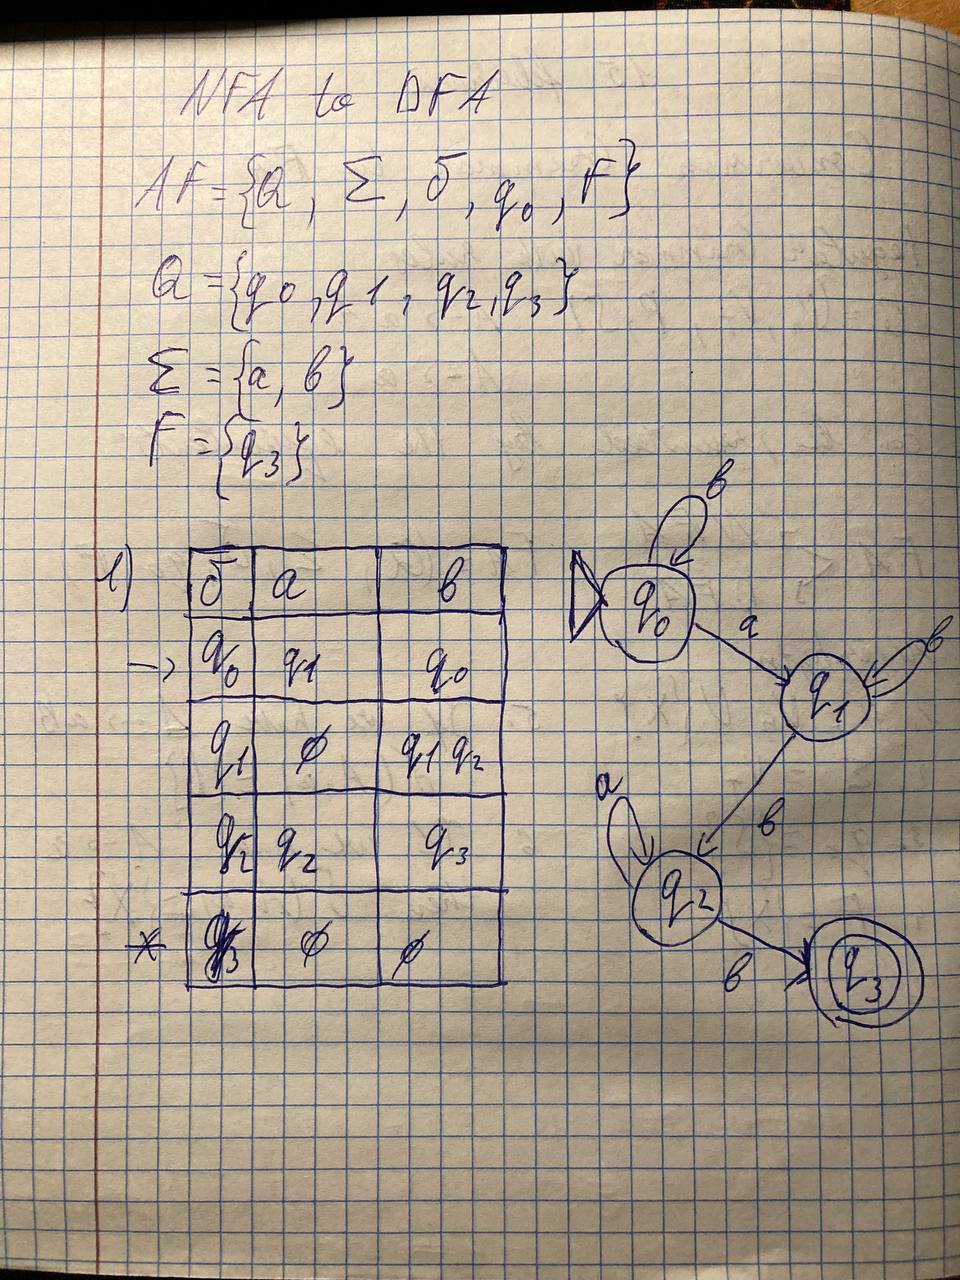 NFA to DFA
AF={Q, Σ, δ, q0, F}
Q={q0, q1, q2, q3}
Σ={a, b}
F={q3}
1)
δ a b
→ q0 q1 q0
q1 ∅ q1 q2
q2 q2 q3
* q3 ∅ ∅
b
q0
a
b
q1
b
a
q2
b
q3